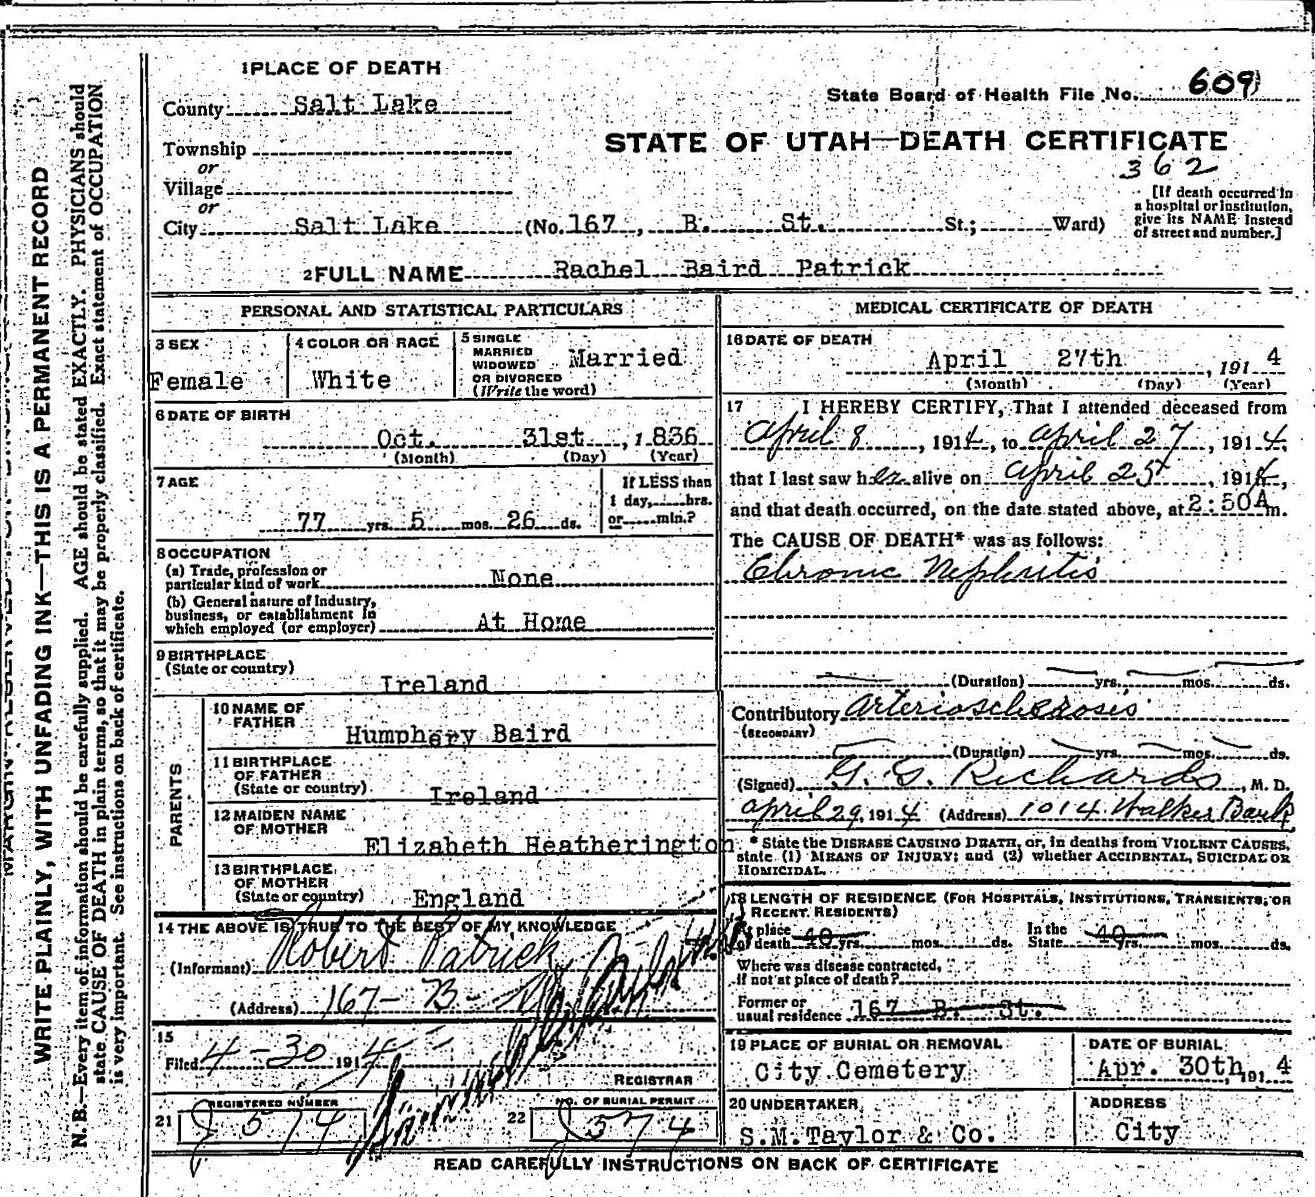 1 PLACE OF DEATH
County Salt Lake
Township
or
Village
or
City Salt Lake (No. 167, B. St. St.; Ward)
State Board of Health File No. 609
STATE OF UTAH—DEATH CERTIFICATE
362
[If death occurred in a hospital or institution, give its NAME instead of street and number.]
2 FULL NAME Rachel Baird Patrick
PERSONAL AND STATISTICAL PARTICULARS
3 SEX
Female
4 COLOR OR RACE
White
5 SINGLE
MARRIED
WIDOWED
OR DIVORCED
(Write the word)
Married
6 DATE OF BIRTH
Oct. 31st, 1836
(Month) (Day) (Year)
7 AGE
77 yrs. 5 mos. 26 ds.
If LESS than
1 day, hrs.
or min.?
8 OCCUPATION
(a) Trade, profession or
particular kind of work None
(b) General nature of Industry,
business, or establishment in
which employed (or employer) At Home
9 BIRTHPLACE
(State or country)
Ireland
PARENTS
10 NAME OF
FATHER
Humphery Baird
11 BIRTHPLACE
OF FATHER
(State or country)
Ireland
12 MAIDEN NAME
OF MOTHER
Elizabeth Heatherington
13 BIRTHPLACE
OF MOTHER
(State or country) England
14 THE ABOVE IS TRUE TO THE BEST OF MY KNOWLEDGE
(Informant) Robert Patrick
(Address) 167 - B -
15
Filed 4-30 1914
REGISTRAR
21 REGISTERED NUMBER
J 574
22 NO. OF BURIAL PERMIT
J 574
MEDICAL CERTIFICATE OF DEATH
16 DATE OF DEATH
April 27th, 1914
(Month) (Day) (Year)
17 I HEREBY CERTIFY, That I attended deceased from
April 8, 1914, to April 27, 1914,
that I last saw her alive on April 25, 1914,
and that death occurred, on the date stated above, at 2:50 A m.
The CAUSE OF DEATH* was as follows:
Chronic Nephritis
(Duration) yrs. mos. ds.
Contributory Arteriosclerosis
(SECONDARY)
(Duration) yrs. mos. ds.
(Signed) G. G. Richards, M. D.
April 29, 1914 (Address) 1014 Walker Bank
* State the DISEASE CAUSING DEATH, or, in deaths from VIOLENT CAUSES,
state (1) MEANS OF INJURY; and (2) whether ACCIDENTAL, SUICIDAL OR
HOMICIDAL.
18 LENGTH OF RESIDENCE (FOR HOSPITALS, INSTITUTIONS, TRANSIENTS, OR
RECENT RESIDENTS)
place
of death 40 yrs. mos. ds. In the State 40 yrs. mos. ds.
Where was disease contracted,
If not at place of death?
Former or
usual residence 167 B. St.
19 PLACE OF BURIAL OR REMOVAL
City Cemetery
DATE OF BURIAL
Apr. 30th, 1914
20 UNDERTAKER
S.M. Taylor & Co.
ADDRESS
City
READ CAREFULLY INSTRUCTIONS ON BACK OF CERTIFICATE
WRITE PLAINLY, WITH UNFADING INK—THIS IS A PERMANENT RECORD
N. B.—Every item of information should be carefully supplied. AGE should be stated EXACTLY. PHYSICIANS should
state CAUSE OF DEATH in plain terms, so that it may be properly classified. Exact statement of OCCUPATION
is very important. See instructions on back of certificate.